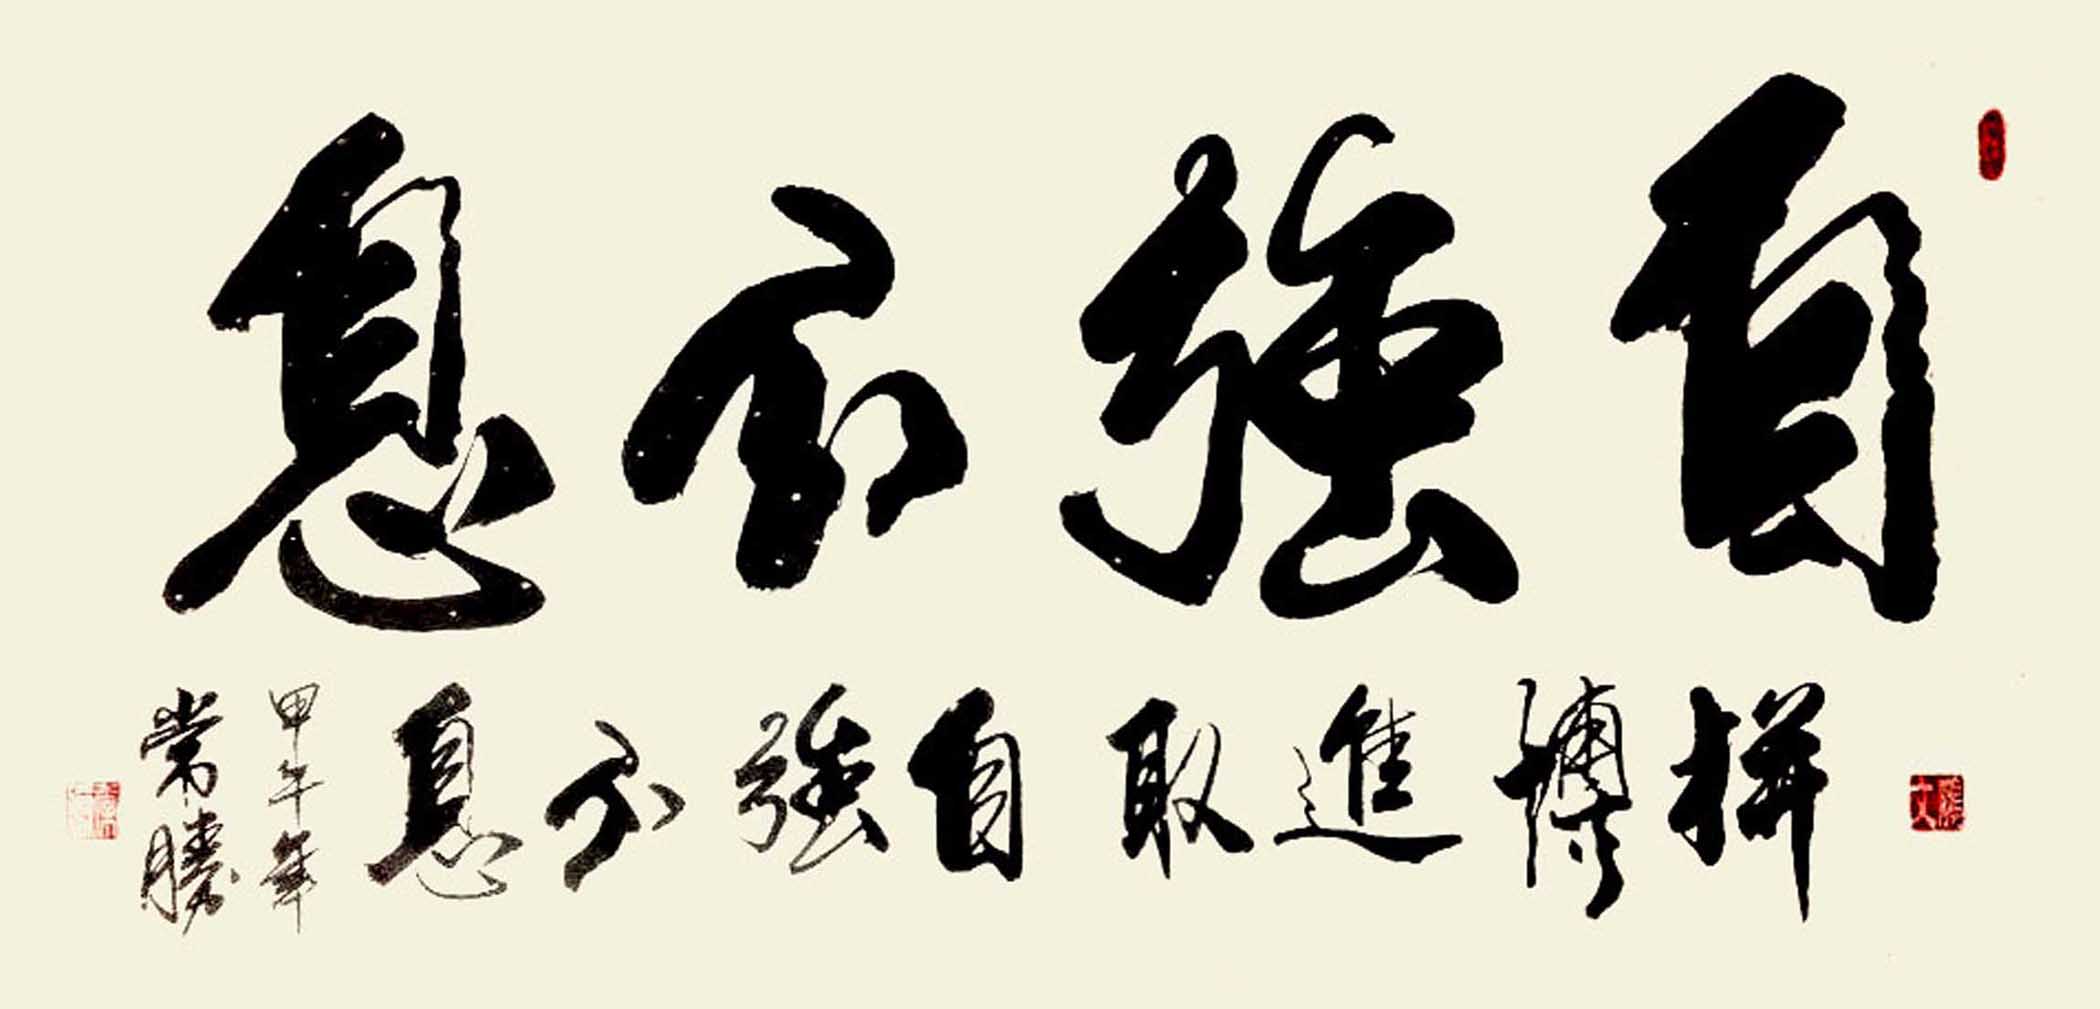 自強不息
拼搏進取自強不息
甲午年
常勝